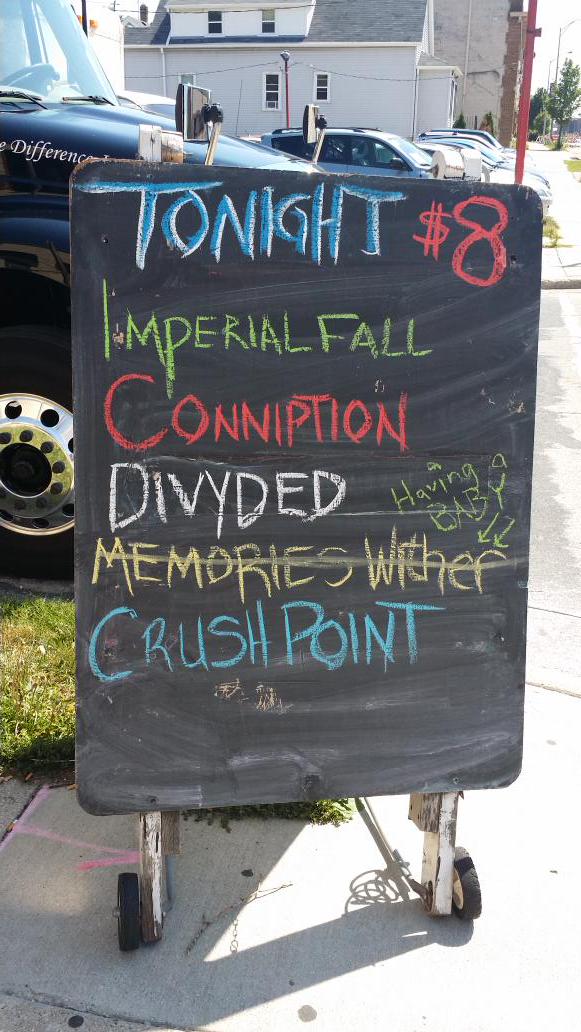 e Difference
TONIGHT $8
IMPERIAL FALL
CONNIPTION
DIVYDED
Having a
BABY
MEMORIES WITHER
CRUSH POINT